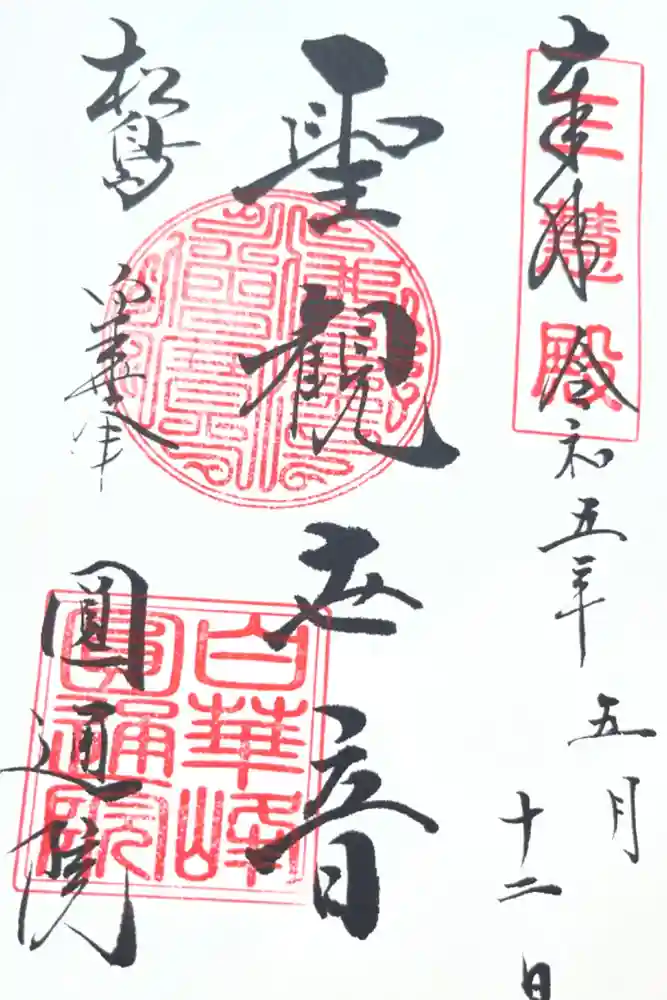 奉拝
三慧殿
令和五年
五月
十二日
聖観世音
松島
白華峯
圓通院
白華峰
圓通院